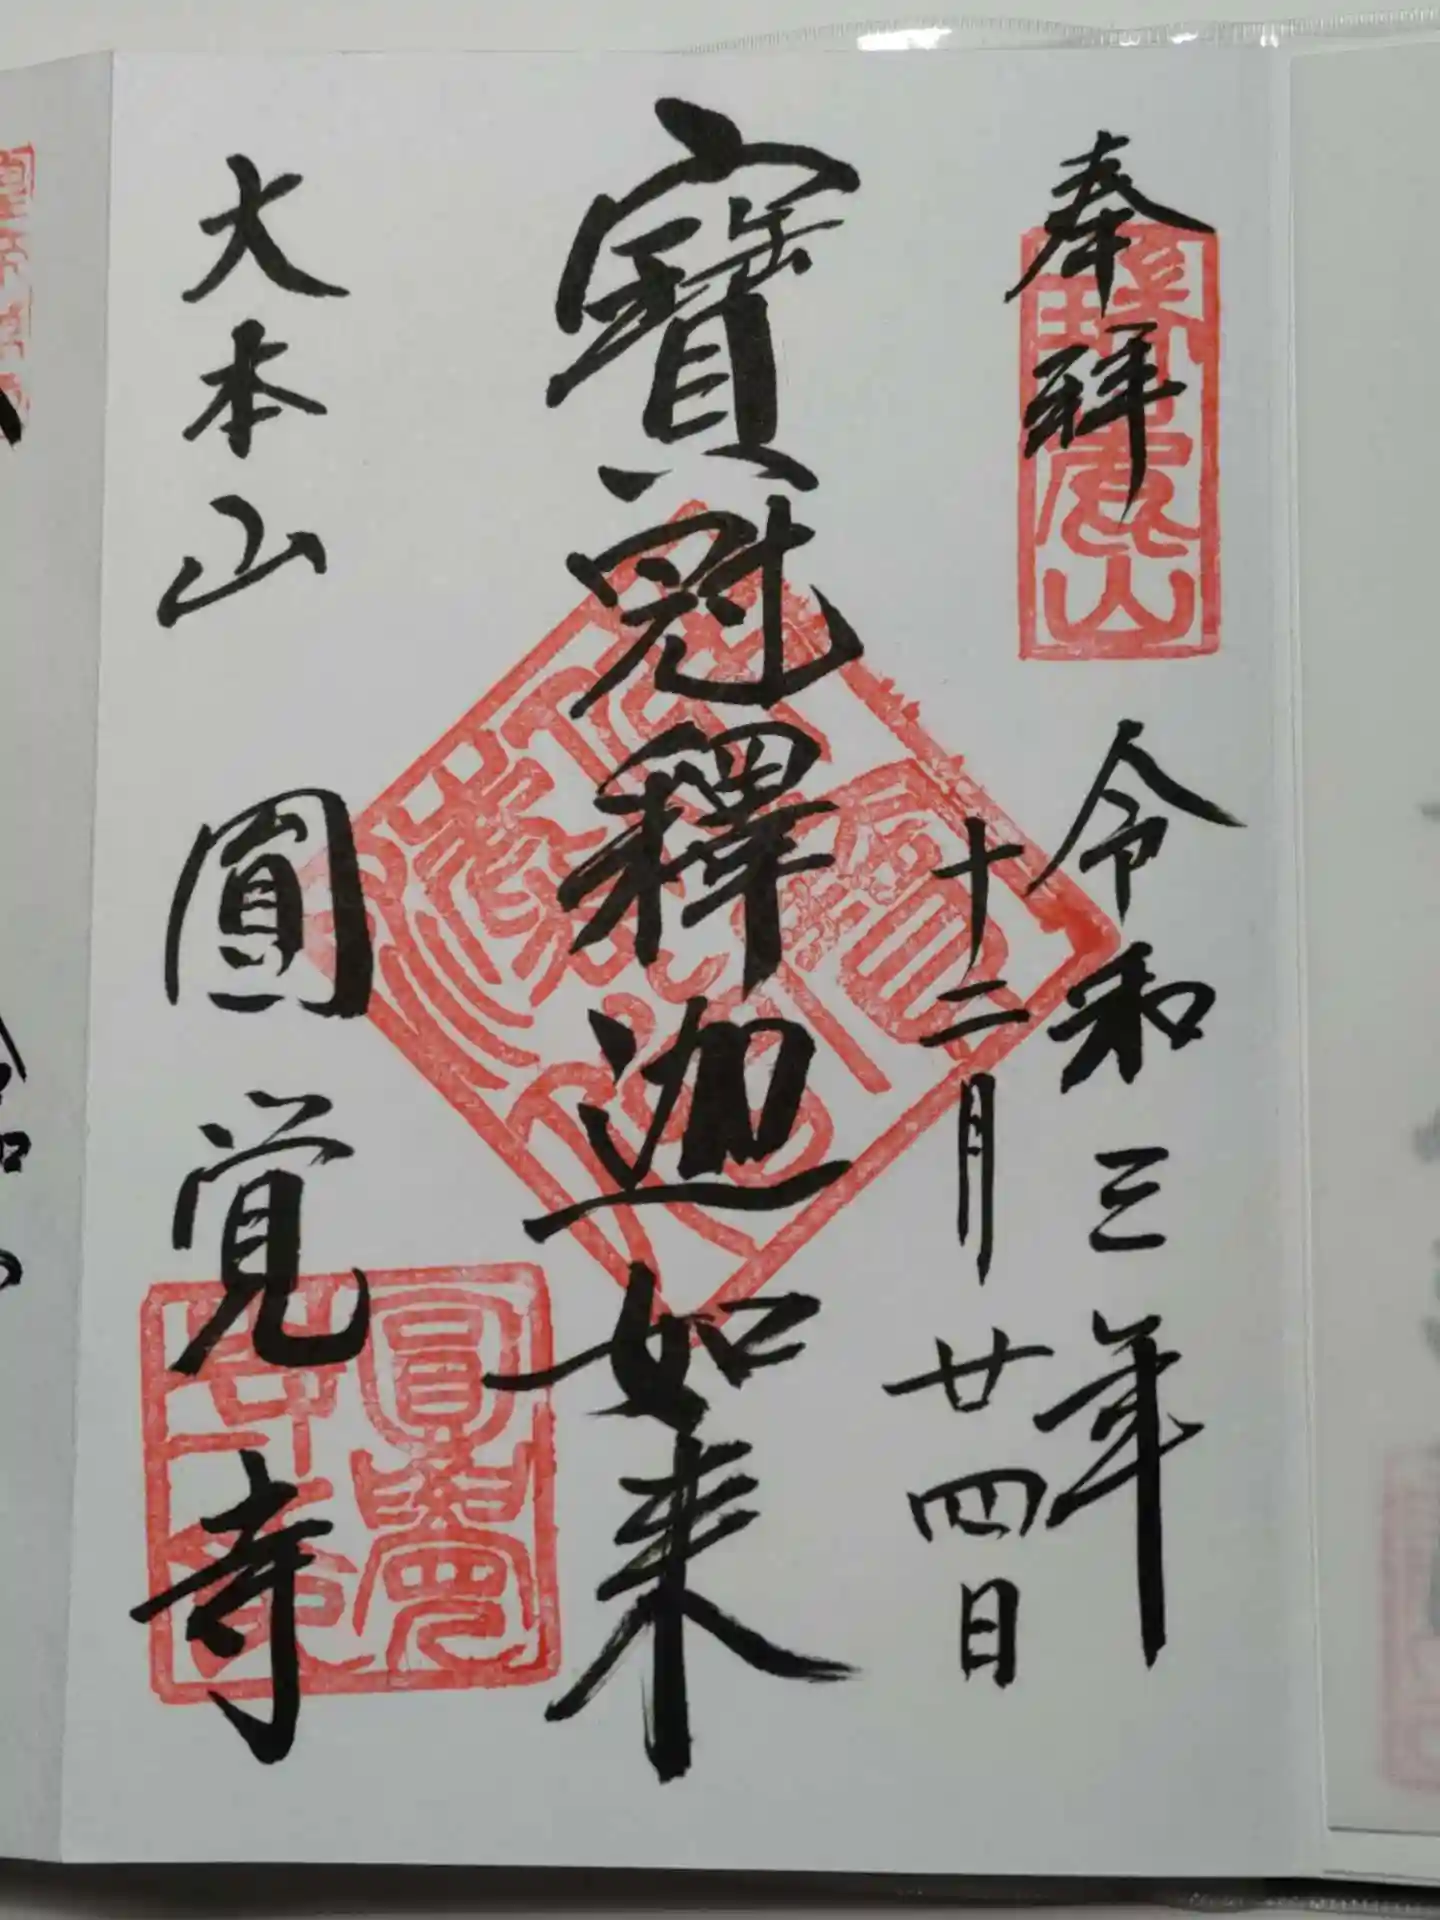 奉拜
瑞鹿山
令和三年
十二月廿四日
寶冠釋迦如来
大本山 圓覚寺